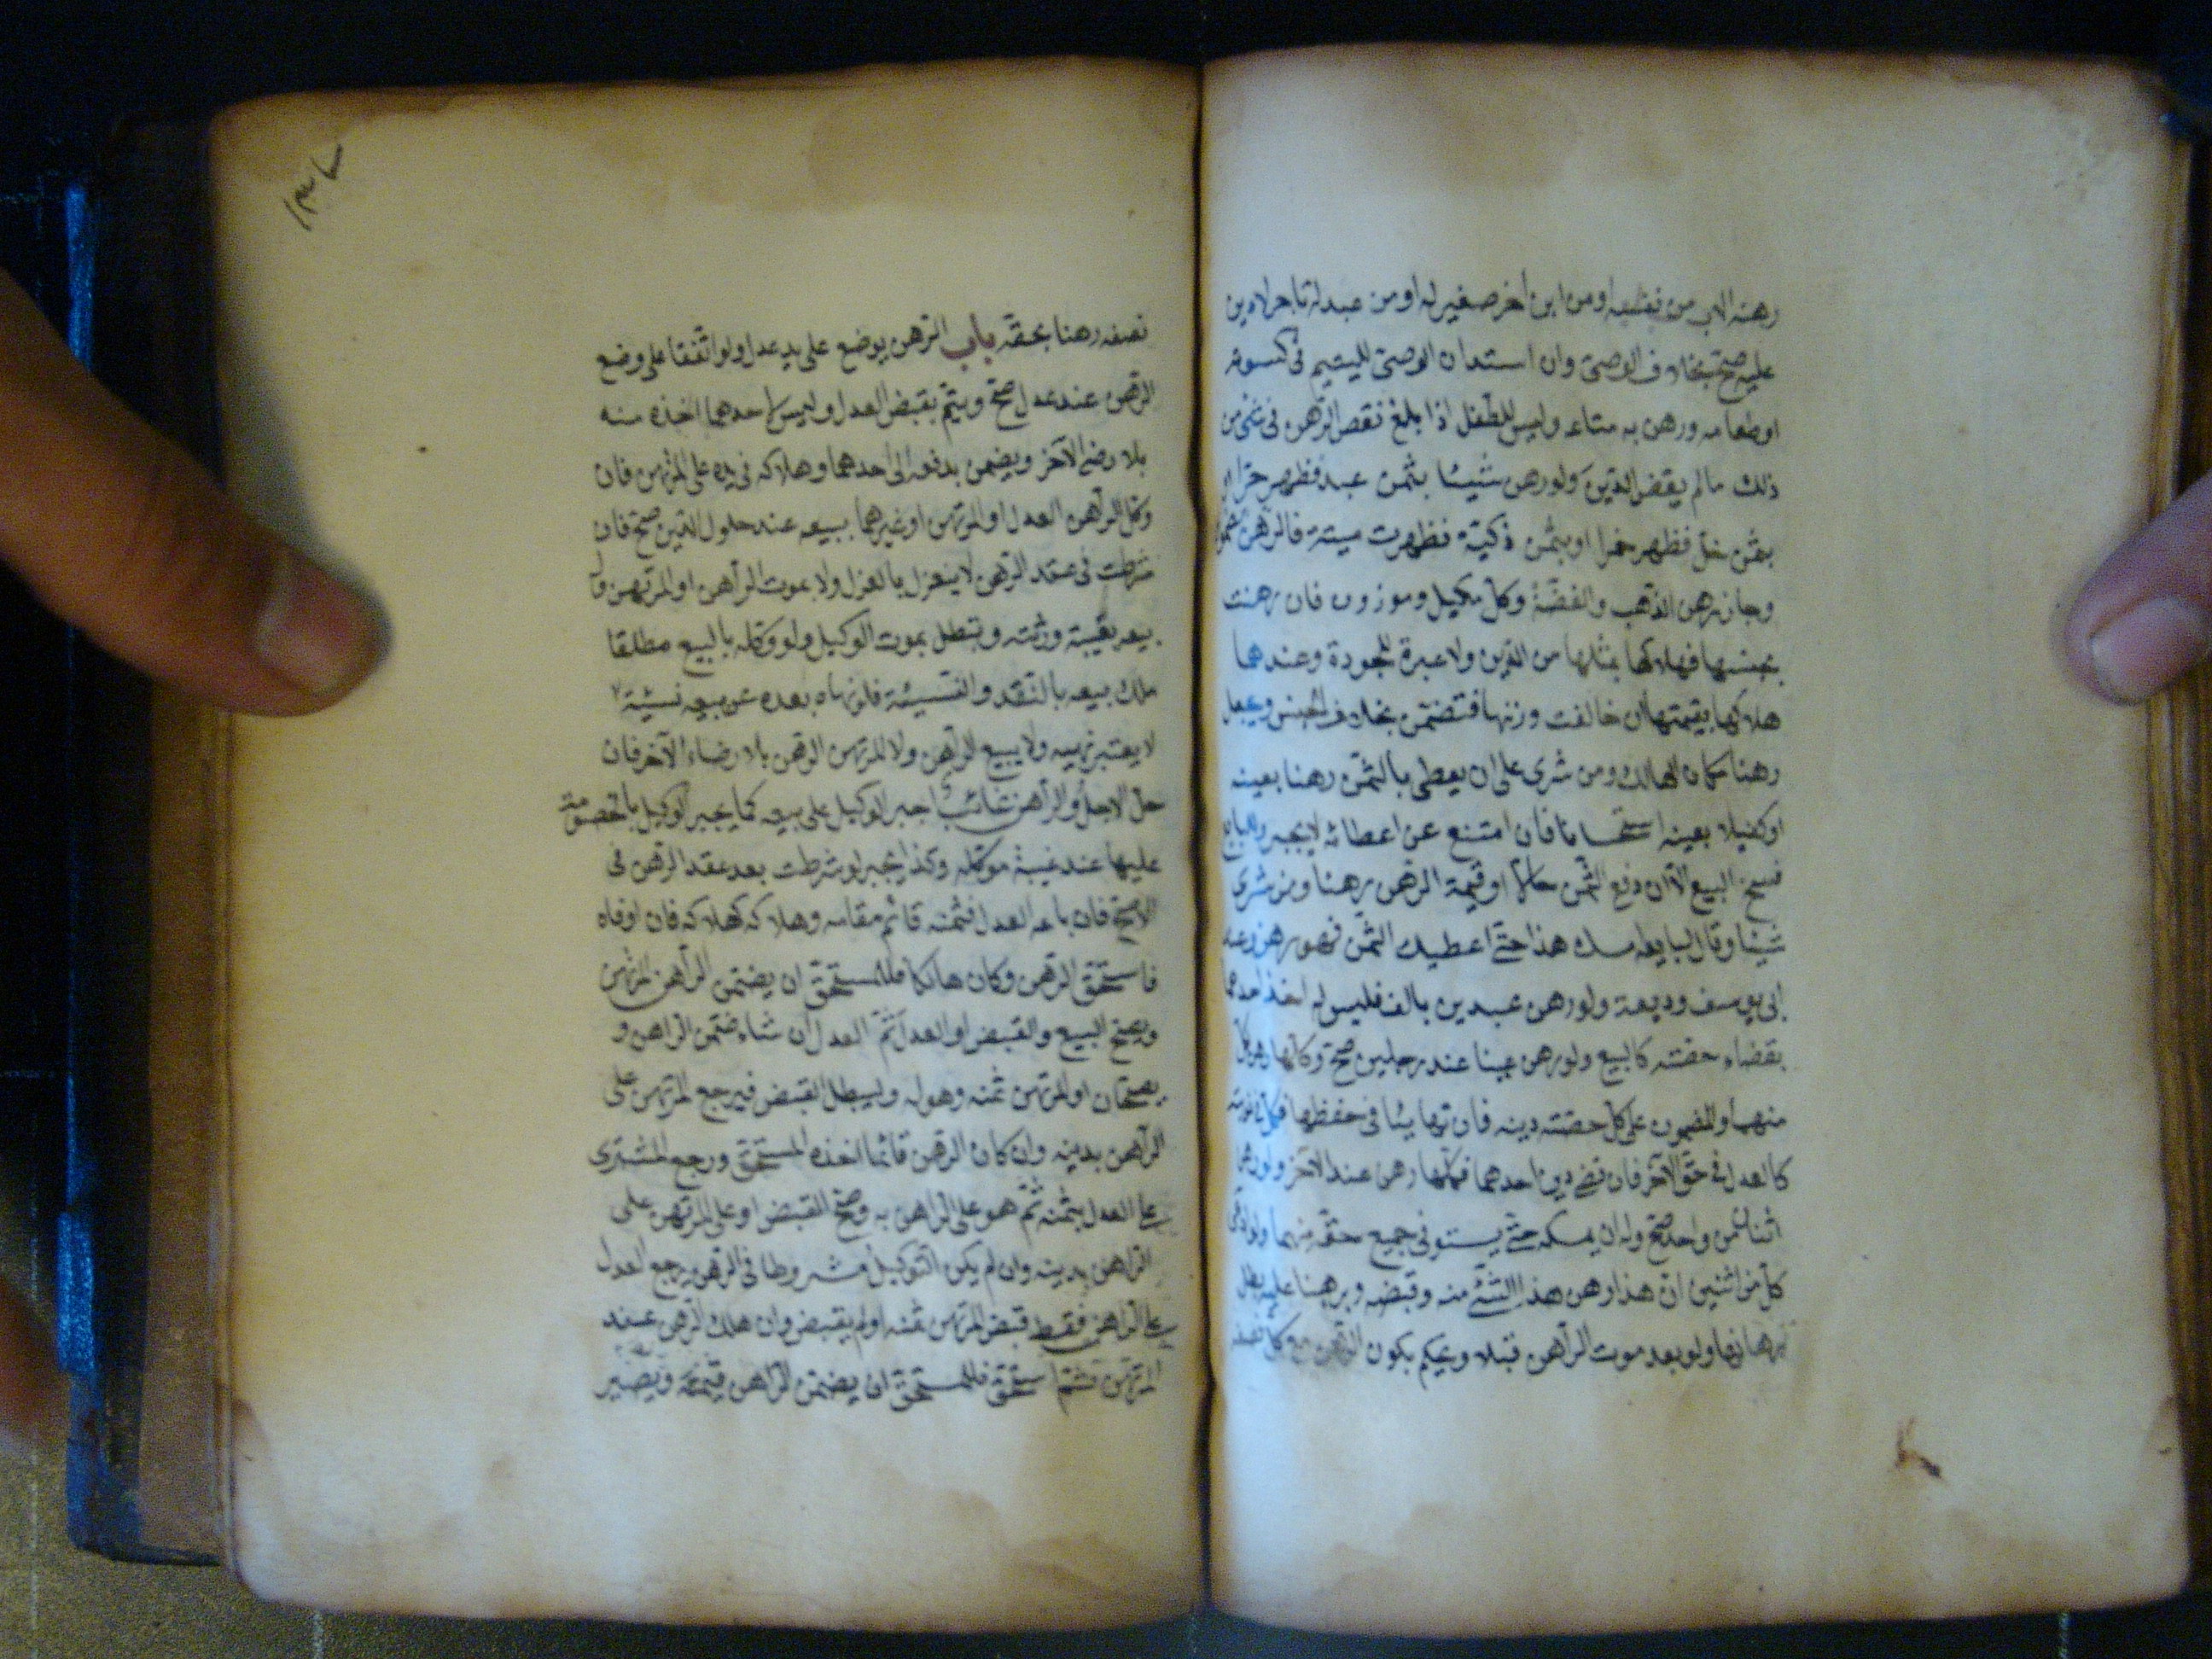 رهنه الاب من نفسه او من ابن اخر صغير له او من عبد له تاجر لا دين
عليه صح بخلاف الوصى وان استدان الوصى لليتيم فى كسوته
او طعامه ورهن به متاعه وليس للطفل اذا بلغ نقض الرهن فى شئ من
ذلك مالم يقض الدين ولو رهن شيئا بثمن عبد فظهر حرا او
بثمن خل فظهر خمرا او بثمن ذكية فظهرت ميتة فالرهن مضمون
وجاز رهن الذهب والفضة وكل مكيل وموزون فان رهنت
بجنسها فهلاكها بمثلها من الدين ولا عبرة للجودة وعندهما
هلاكها بقيمتها ان خالفت وزنها فتضمن بخلاف الجنس ويجعل
رهنا مكان الهالك ومن شرى على ان يعطى بالثمن رهنا بعينه
او كفيلا بعينه استحسانا فان امتنع عن اعطائه لا يجبر وللبايع
فسخ البيع الا ان دفع الثمن حالا او قيمة الرهن رهنا ومن شرى
شيئا وقال لبايعه امسك هذا حتى اعطيك الثمن فهو رهن وعند
ابى يوسف وديعة ولو رهن عبدين بالف فليس له اخذ احدهما
بقضاء حصته كالبيع ولو رهن عينا عند رجلين صح وكلها رهن لكل
منهما والمضمون على كل حصته دينه فان تهايئا فى حفظها فكل فى نوبته
كالعدل فى حق الآخر فان قضى دين احدهما فكلها رهن عند الآخر ولو رهن
اثنان من واحد صح وله ان يمسكه حتى يستوفى جميع حقه منهما ولو ادعى
كل من اثنين ان هذا رهن هذا الشئ منه وقبضه وبرهنا عليه بطل
برهانهما ولو بعد موت الراهن قبلا ويحكم بكون الرهن مع كل نصفه
١٣٧
نصفه رهنا بحقه باب الرهن يوضع على يد عدل ولو اتفقا على وضع
الرهن عند عدل صح ويتم بقبض العدل وليس لاحدهما اخذه منه
بلا رضى الآخر ويضمن بدفعه الى احدهما وهلاكه فى يده على المرتهن فان
وكل الراهن العدل او المرتهن او غيرهما ببيعه عند حلول الدين صح فان
شرطت فى عقد الرهن لا ينعزل بالعزل ولا بموت الراهن او المرتهن وله
بيعه بغيبة ورثته وتبطل بموت الوكيل ولو وكله بالبيع مطلقا
ملك بيعه بالنقد والنسيئة فلو نهاه بعده عن بيعه نسيئة
لا يعتبر نهيه ولا يبيع الراهن ولا المرتهن الرهن بلا رضاء الآخر فان
حل الاجل والراهن غائب اجبر الوكيل على بيعه كما يجبر الوكيل بالخصومة
عليها عند غيبة موكله وكذا يجبر لو شرطت بعد عقد الرهن فى
الاصح فان باعه العدل فثمنه قائم مقامه وهلاكه كهلاكه فان اوفاه
فاستحق الرهن وكان هالكا فللمستحق ان يضمن الراهن المرتهن
ويصح البيع والقبض او العدل ثم العدل ان شاء ضمن الراهن و
يصحان او المرتهن ثمنه وهو له ويبطل القبض فيرجع المرتهن على
الراهن بدينه وان كان الرهن قائما اخذه المستحق ورجع المشترى
على العدل بثمنه ثم هو على الراهن به وصح القبض او على المرتهن على
الراهن بدينه وان لم يكن التوكيل مشروطا فى الرهن يرجع العدل
على الراهن فقط قبض المرتهن ثمنه او لم يقبض وان هلك الرهن عند
المرتهن استحق فللمستحق ان يضمن الراهن قيمته ويصير